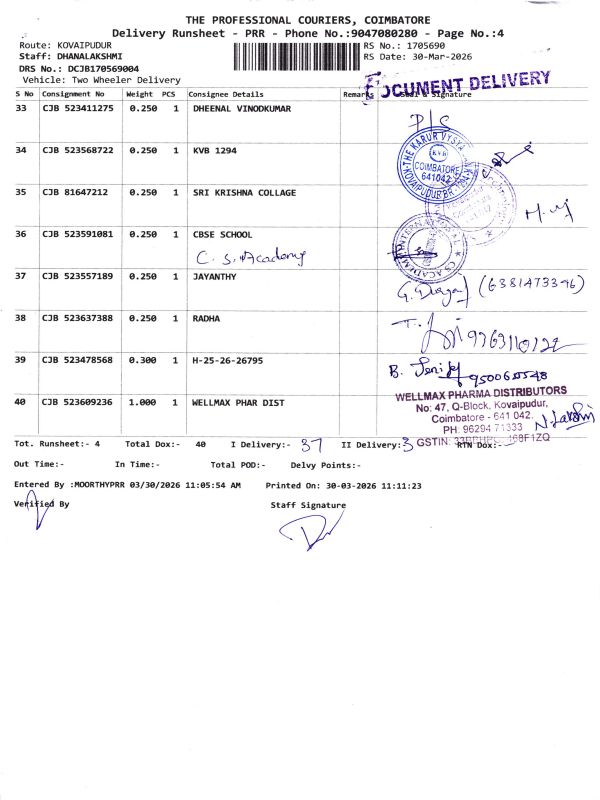 THE PROFESSIONAL COURIERS, COIMBATORE
Delivery Runsheet - PRR - Phone No.:9047080280 - Page No.:4
Route: KOVAIPUDUR
RS No.: 1705690
Staff: DHANALAKSHMI
RS Date: 30-Mar-2026
DRS No.: DCJB170569004
Vehicle: Two Wheeler Delivery
DOCUMENT DELIVERY
S No Consignment No Weight PCS Consignee Details Remarks Signature
33 CJB 523411275 0.250 1 DHEENAL VINODKUMAR
D/C
34 CJB 523568722 0.250 1 KVB 1294
THE KARUR VYSYA
KVB
COIMBATORE
641042
35 CJB 81647212 0.250 1 SRI KRISHNA COLLAGE
36 CJB 523591081 0.250 1 CBSE SCHOOL
C. S. Academy
37 CJB 523557189 0.250 1 JAYANTHY
(6381473346)
38 CJB 523637388 0.250 1 RADHA
39 CJB 523478568 0.300 1 H-25-26-26795
B.
40 CJB 523609236 1.000 1 WELLMAX PHAR DIST
WELLMAX PHARMA DISTRIBUTORS
No: 47, Q-Block, Kovaipudur,
Coimbatore - 641 042.
PH: 96294 71333
GSTIN:
Tot. Runsheet:- 4 Total Dox:- 40 I Delivery:- 37 II Delivery:- 3 RTN Dox:-
Out Time:- In Time:- Total POD:- Delvy Points:-
Entered By :MOORTHYPRR 03/30/2026 11:05:54 AM Printed On: 30-03-2026 11:11:23
Verified By Staff Signature